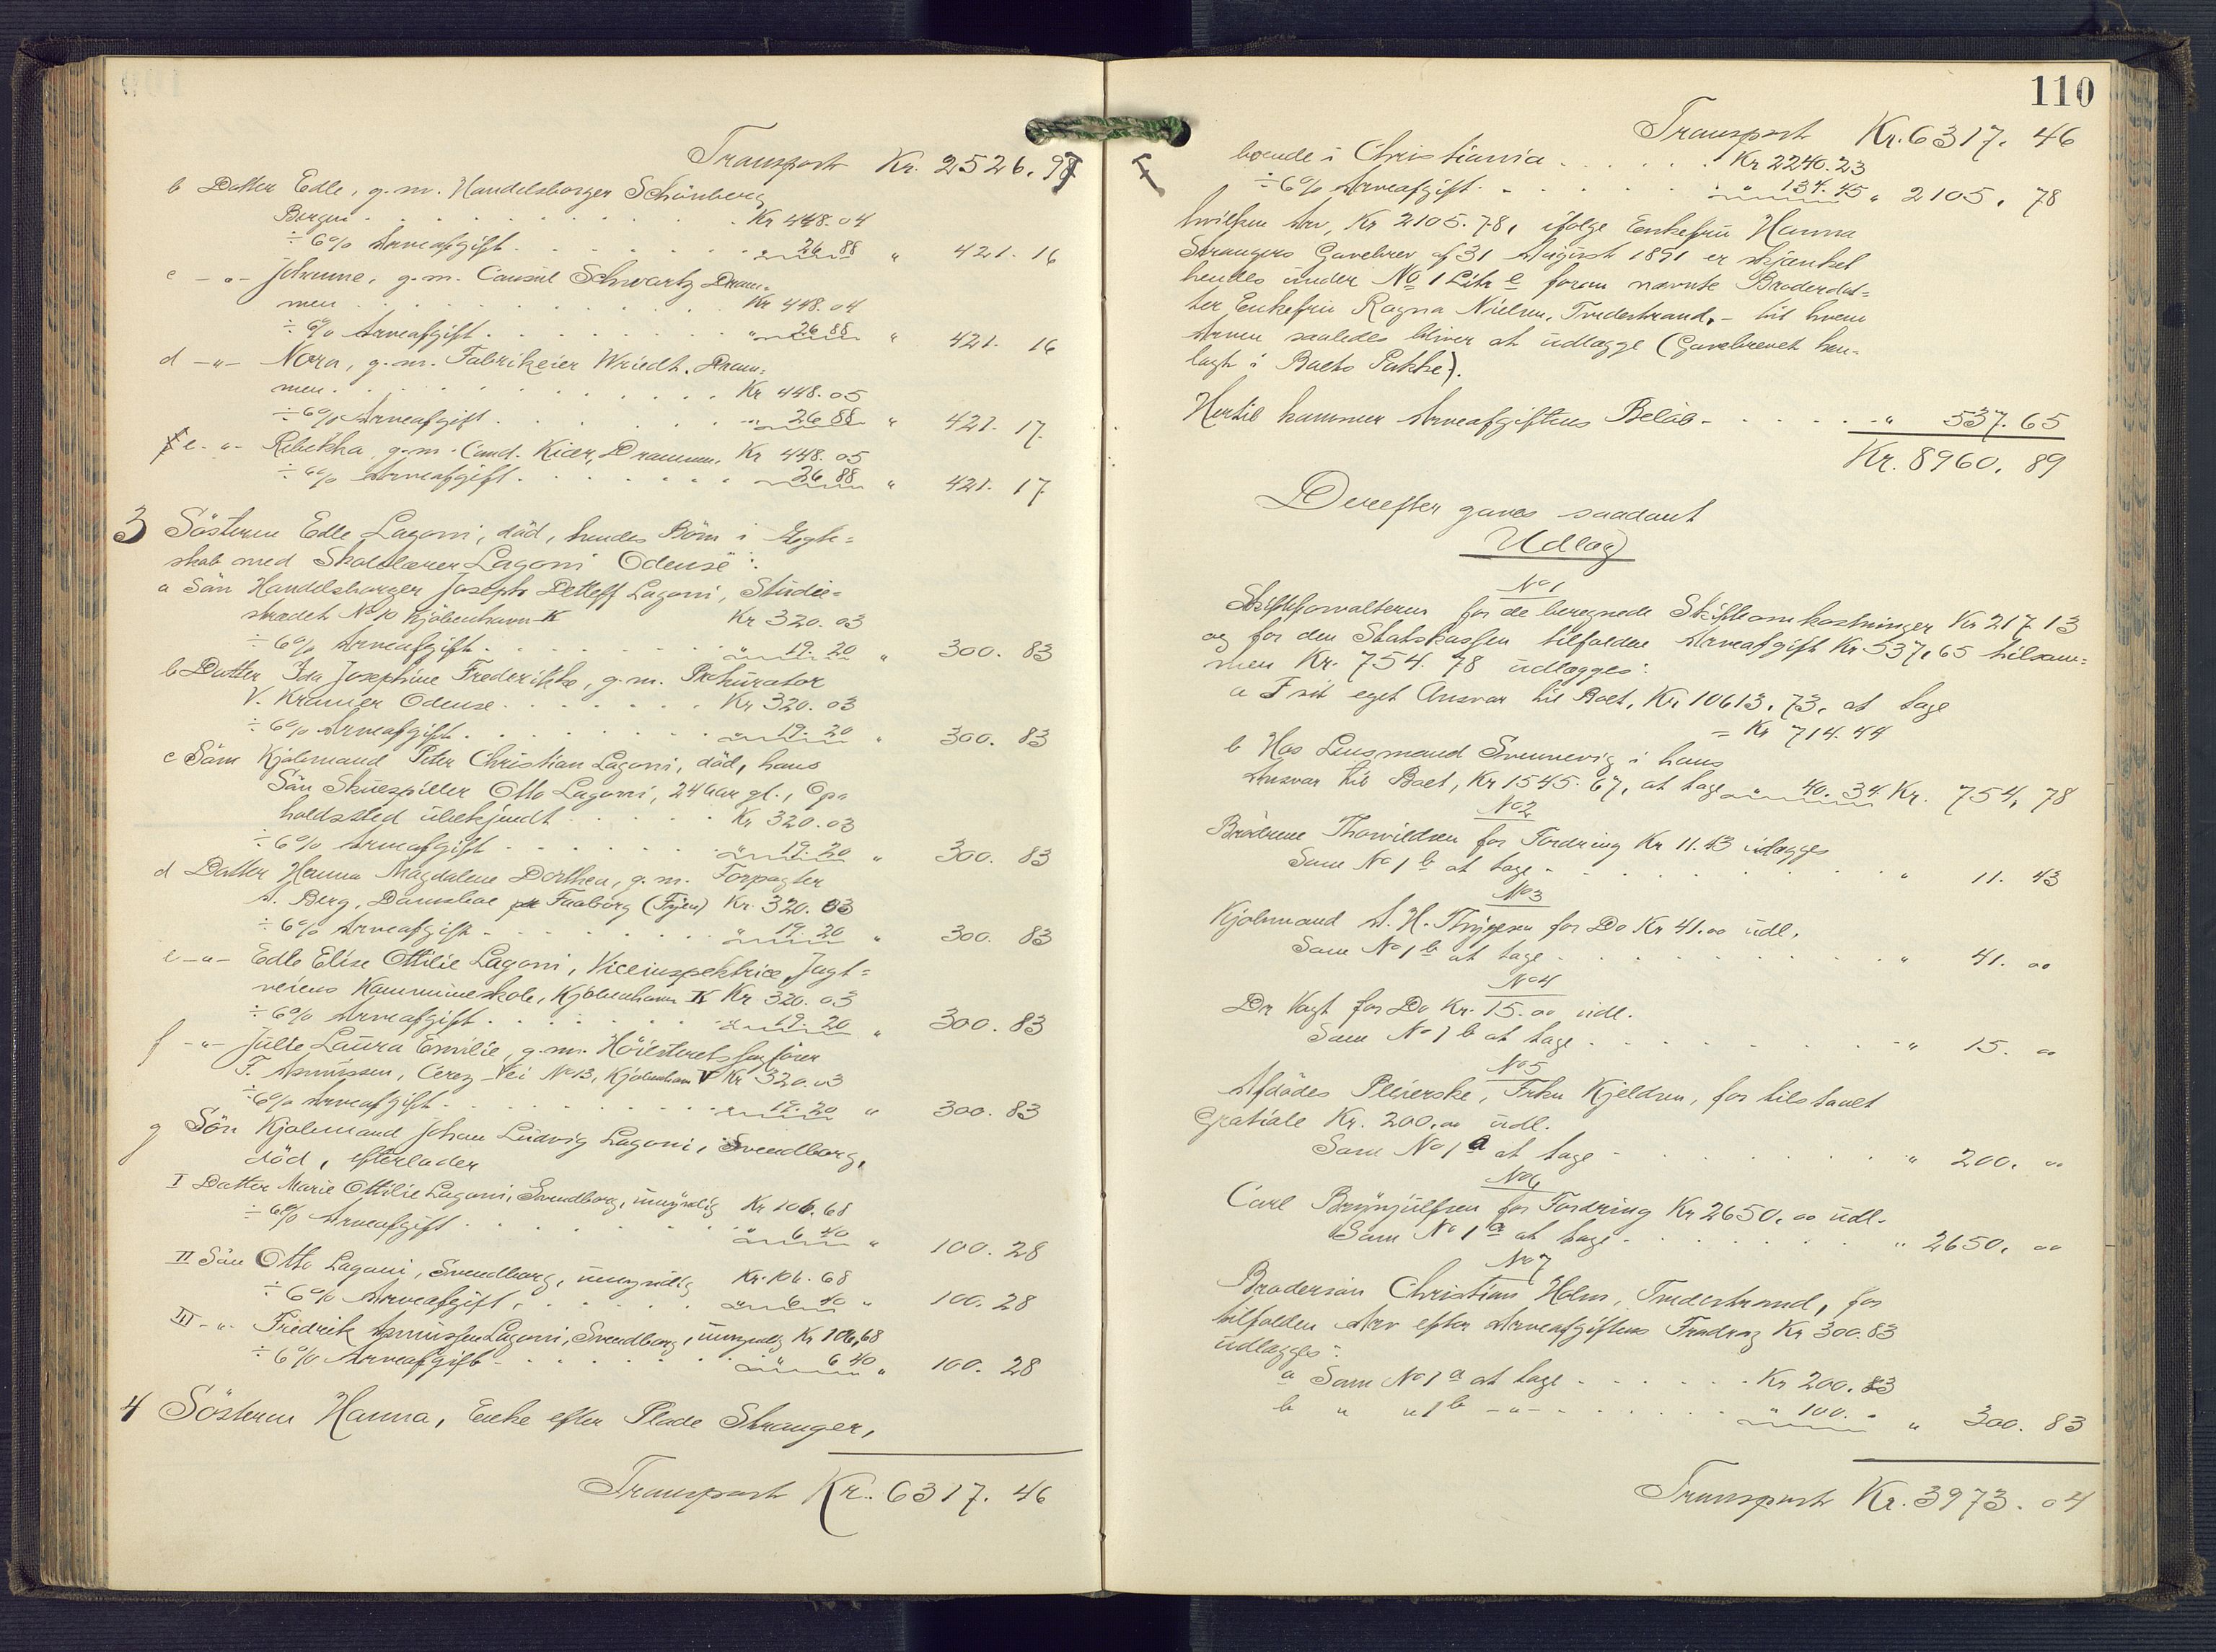 Transport Kr. 2526. 98
b Datter Edle, g. m. Handelsborger Schönberg
Bergen . . . Kr 448. 04
÷ 6% Arveafgift . . . " 26 88 " 421. 16
c -"- Johanne, g. m. Consul Schwartz Dram-
men . . . Kr 448. 04
÷ 6% Arveafgift . . . " 26 88 " 421. 16
d -"- Nora, g. m. Fabrikeier Wriedt. Dram-
men . . . Kr 448. 05
÷ 6% Arveafgift . . . " 26 88 " 421. 17
e -"- Rebekka, g. m. Cand. Kiær, Drammen. Kr 448. 05
÷ 6% Arveafgift . . . 26 88 " 421. 17
3 Søsteren Edle Lagoni, död, hendes Börn i Ægte-
skab med Skolelærer Lagoni Odense:
a Sön Handelsborger Joseph Detleff Lagoni, Studie-
strædet No 10 Kjöbenhavn K Kr 320. 03
÷ 6% Arveafgift . . . " 19. 20 " 300. 83
b Datter Ida Josephine Frederikke, g. m. Prokurator
V. Kramer Odense . . . Kr 320. 03
÷ 6% Arveafgift . . . " 19. 20 " 300. 83
c Sön Kjöbmand Peter Christian Lagoni, död, hans
Sön Skuespiller Otto Lagoni, 24 Aar gl., Op-
holdssted ubekjendt . . . Kr 320. 03
÷ 6% Arveafgift . . . " 19. 20 " 300. 83
d Datter Hanna Magdalene Dorthea, g. m. Forpagter
A. Berg, Damsboe pr Faaborg (Fyen) Kr. 320. 03
÷ 6% Arveafgift . . . " 19. 20 " 300. 83
e -"- Edle Elise Ottilie Lagoni, Viceinspektrice Jagt-
veiens Kommuneskole, Kjöbenhavn K Kr 320. 03
÷ 6% Arveafgift . . . " 19. 20 " 300. 83
f -"- Julie Laura Emilie, g. m. Höiesteretssagförer
F. Asmussen, Ceres Vei No 13, Kjöbenhavn V Kr 320. 03
÷ 6% Arveafgift . . . " 19. 20 " 300. 83
g Sön Kjöbmand Johan Ludvig Lagoni, Svendborg,
död, efterlader
I Datter Marie Ottilie Lagoni, Svendborg, umyndig Kr 106. 68
÷ 6% Arveafgift . . . " 6 40 " 100. 28
II Sön Otto Lagoni, Svendborg, umyndig Kr. 106. 68
÷ 6% Arveafgift . . . " 6 40 " 100. 28
III -"- Fredrik Asmussen Lagoni, Svendborg, umyndig Kr 106, 68
÷ 6% Arveafgift . . . " 6 40 " 100. 28
4 Søsteren Hanna, Enke efter Plade Stranger,
Transport Kr. 6317. 46
110
Transport Kr. 6317. 46
boende i Christiania . . . Kr 2240. 23
÷ 6% Arveafgift . . . " 134. 45 " 2105. 78
hvilken Arv, Kr 2105. 78, ifölge Enkefru Hanna
Strangers Gavebrev af 31 August 1891 er skjænket
hendes under No 1 Litr e foran nævnte Broderdat-
ter Enkefru Ragna Nielsen, Tvedestrand, – til hvem
Arven saaledes bliver at udlægge (Gavebrevet hen-
lagt i Boets Pakke).
Hertil kommer Arveafgiftens Belöb . . . " 537. 65
Kr. 8960. 89
Derefter gaves saadant
Udlæg
No 1
Skifteforvalteren for de beregnede Skifteomkostninger Kr 217 13
og for den Statskassen tilfaldne Arveafgift Kr 537, 65 tilsam-
men Kr. 754. 78 udlægges:
a I sit eget Ansvar til Boet, Kr. 10613. 73, at tage
= Kr 714. 44
b Hos Lensmand Svennevig i hans
Ansvar til Boet, Kr 1545. 67, at tage " 40. 34 Kr. 754, 78
No 2
Brödrene Thorvildsen for Fordring Kr 11. 43 udlægges
Som No 1 b at tage . . . " 11. 43
No 3
Kjöbmand A. H. Thygesen for Do Kr 41. 00 udl.
Som No 1 b at tage . . . " 41. 00
No 4
Dr Vogt for Do Kr. 15. 00 udl.
Som No 1 b at tage . . . " 15. 00
No 5
Afdödes Pleierske, Frkn Kjeldsen, for tilstaaet
Gratiale Kr. 200. 00 udl.
Som No 1 a at tage . . . " 200. 00
No 6
Carl Brynjulfsen for Fordring Kr 2650. 00 udl.
Som No 1 a at tage . . . " 2650. 00
No 7
Brodersön Christian Holm, Tvedestrand, for
tilfalden Arv efter Arveafgiftens Fradrag Kr 300. 83
udlægges:
a Som No 1 a at tage . . . Kr 200. 83
b " " 1 b -"- . . . " 100. " " 300. 83
Transport Kr. 3973. 04